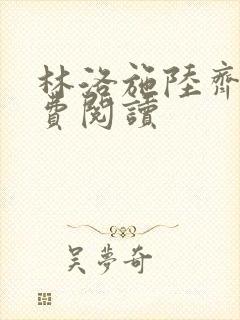 林洛施陸齊
費閱讀
吴夢奇